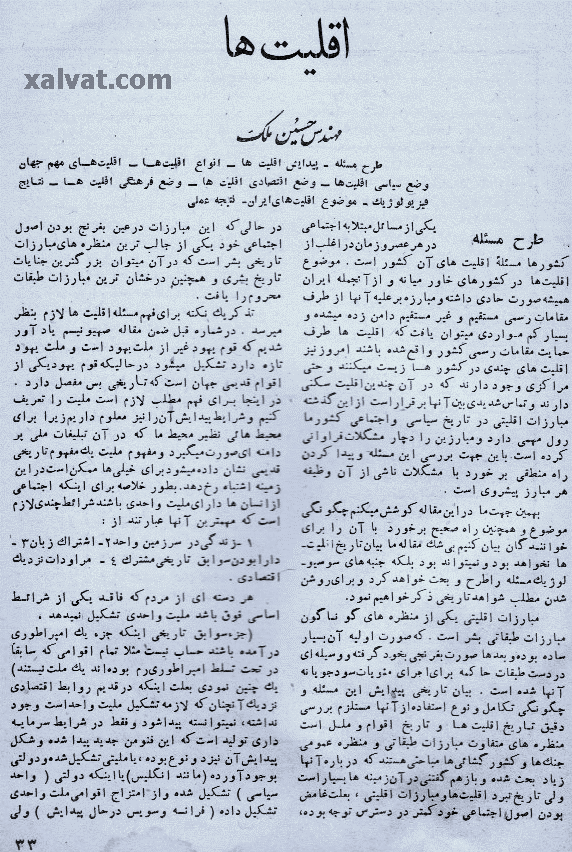 اقلیت ها
xalvat.com
مهندس حسین ملک
طرح مسئله ـ پیدایش اقلیت ها ـ انواع اقلیت‌ها ـ اقلیت‌های مهم جهان
وضع سیاسی اقلیت‌ها ـ وضع اقتصادی اقلیت ها ـ وضع فرهنگی اقلیت ها ـ نتایج
فیزیولوژیک ـ موضوع اقلیت‌های ایران ـ نتیجه عملی
طرح مسئله
یکی از مسائل مبتلا به اجتماعی
در هر عصر و زمان در اغلب از
کشورها مسئلهٔ اقلیت های آن کشور است . موضوع
اقلیت‌ها در کشورهای خاور میانه و از آنجمله ایران
همیشه صورت حادی داشته و مبارزه بر علیه آنها از طرف
مقامات رسمی مستقیم و غیر مستقیم دامن زده میشده و
بسیار کم مواردی میتوان یافت که اقلیت ها طرف
حمایت مقامات رسمی کشور واقع شده باشند امروز نیز
اقلیت های چندی در کشور ما زیست میکنند و حتی
مراکزی وجود دارند که در آن چندین اقلیت سکنی
دارند و تماس شدیدی بین آنها برقرار است از این گذشته
مبارزات اقلیتی در تاریخ سیاسی و اجتماعی کشور ما
رول مهمی دارد و مبارزین را دچار مشکلات فراوانی
کرده است . باین جهت بررسی این مسئله و پیدا کردن
راه منطقی بر خورد با مشکلات ناشی از آن وظیفه
هر مبارز پیشروی است .
بهمین جهت ما در این مقاله کوشش میکنم چگونگی
موضوع و همچنین راه صحیح برخورد با آن را برای
خوانندگان بیان کنیم بی شك مقاله ما بیان تاریخ اقلیت‌ـ
ها نخواهد بود و نمیتواند بود بلکه جنبه های سوسیو‌ـ
لوژیك مسئله را طرح و بحث خواهد کرد و برای روشن
شدن مطلب شواهد تاریخی ذکر خواهیم نمود.
مبارزات اقلیتی یکی از منظره های گوناگون
مبارزات طبقاتی بشر است . که صورت اولیه آن بسیار
ساده بوده و بعدها صورت بغرنجی بخود گرفته و وسیله‌ای
در دست طبقات حاکمه برای اجرای منویات سودجویانه
آنها شده است . بیان تاریخی پیدایش این مسئله و
چگونگی تکامل و نوع استفاده از آنها مستلزم بررسی
دقیق تاریخ اقلیت ها و تاریخ اقوام و ملل است
منظره های متفاوت مبارزات طبقاتی و منظره عمومی
جنك‌ها و کشور گشائی‌ها مباحثی هستند که در باره آنها
زیاد بحث شده و باز هم گفتنی در آن زمینه ها بسیار است
ولی تاریخ نبرد اقلیت‌ها و مبارزات اقلیتی ، بعلت غامض
بودن اصول اجتماعی خود کمتر در دسترس توجه بوده،
در حالی که این مبارزات در عین بغرنج بودن اصول
اجتماعی خود یکی از جالب ترین منظره های مبارزات
تاریخی بشر است که در آن میتوان بزرگترین جنایات
تاریخ بشری و همچنین درخشان ترین مبارزات طبقات
محروم را یافت .
تذکر یك نکته برای فهم مسئله اقلیت ها لازم بنظر
میرسد . در شماره قبل ضمن مقاله صهیونیسم یاد آور
شدیم که قوم یهود غیر از ملت یهود است و ملت یهود
تازه دارد تشکیل میشود در حالیکه قوم یهود یکی از
اقوام قدیمی جهان است که تاریخی بس مفصل دارد .
در اینجا برای فهم مطلب لازم است ملیت را تعریف
کنیم و شرایط پیدایش آن را نیز معلوم داریم زیرا برای
محیط هائی نظیر محیط ما که در آن تبلیغات ملی پر
دامنه ای صورت میگیرد و مفهوم ملیت یك مفهوم تاریخی
قدیمی نشان داده میشود برای خیلی‌ها ممکن است در این
زمینه اشتباه رخ دهد . بطور خلاصه برای اینکه اجتماعی
از انسان ها دارای ملیت واحدی باشند شرائط چندی لازم
است که مهمترین آنها عبارتند از :
۱ ـ زندگی در سرزمین واحد ۲ ـ اشتراك زبان ۳ ـ
دارا بودن سوابق تاریخی مشترك ٤ ـ مراودات نزدیك
اقتصادی .
هر دسته ای از مردم که فاقد یکی از شرائط
اساسی فوق باشد ملیت واحدی تشکیل نمیدهد .
(جزء سوابق تاریخی اینکه جزء یك امپراطوری
در آمده باشند حساب نیست مثلا تمام اقوامی که سابقاً
در تحت تسلط امپراطوری رم بوده‌اند یك ملت نیستند)
یك چنین نمودی بعلت اینکه در قدیم روابط اقتصادی
نزدیك آنچنان که لازمه تشکیل ملیت واحد است وجود
نداشته، نمیتوانسته پیدا شود و فقط در شرایط سرمایه
داری تولید است که این فنومن جدید پیدا شده و شکل
پیدایش آن نیز دو نوع بوده ، یا ملیتی تشکیل شده و دولتی
بوجود آورده (مانند انگلیس) یا اینکه دولتی ( واحد
سیاسی ) تشکیل شده و از امتزاج اقوامی ملت واحدی
تشکیل داده ( فرانسه و سویس در حال پیدایش ) ولی
۳۳